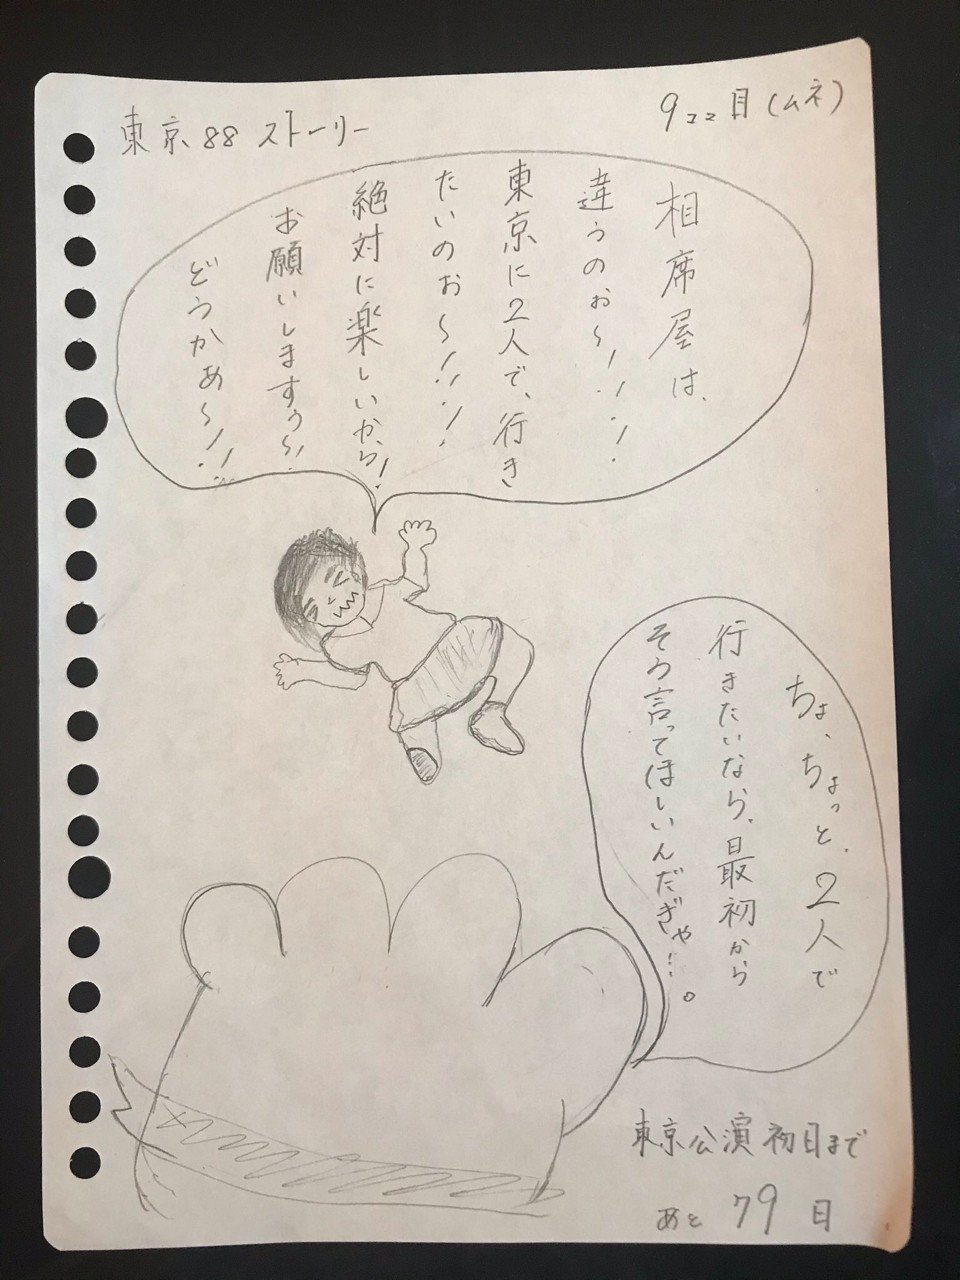 東京88ストーリー
9ココ目(ムネ)
相席屋は、
違うのぉ〜!!!
東京に2人で、行き
たいのお〜!!!
絶対に楽しいから!
お願いしますぅ〜!
どうかあ〜!!!
ちょ、ちょっと、2人で
行きたいなら、最初から
そう言ってほしいんだぎゃ…。
東京公演初日まで
あと79日